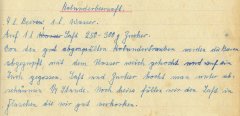 Holundersaft.
4 l. Beeren 1 l. Wasser.
Auf 1 l Saft 250-300 g Zucker.
Von den gut abgespülten Holundertrauben werden die Beeren
abgezupft mit dem Wasser weich gekocht und auf ein
Tuch gegossen. Saft und Zucker kocht man unter ab-
schäumen ¼ Stunde. Noch heiss füllen wir den Saft in
Flaschen die wir gut verkorken.